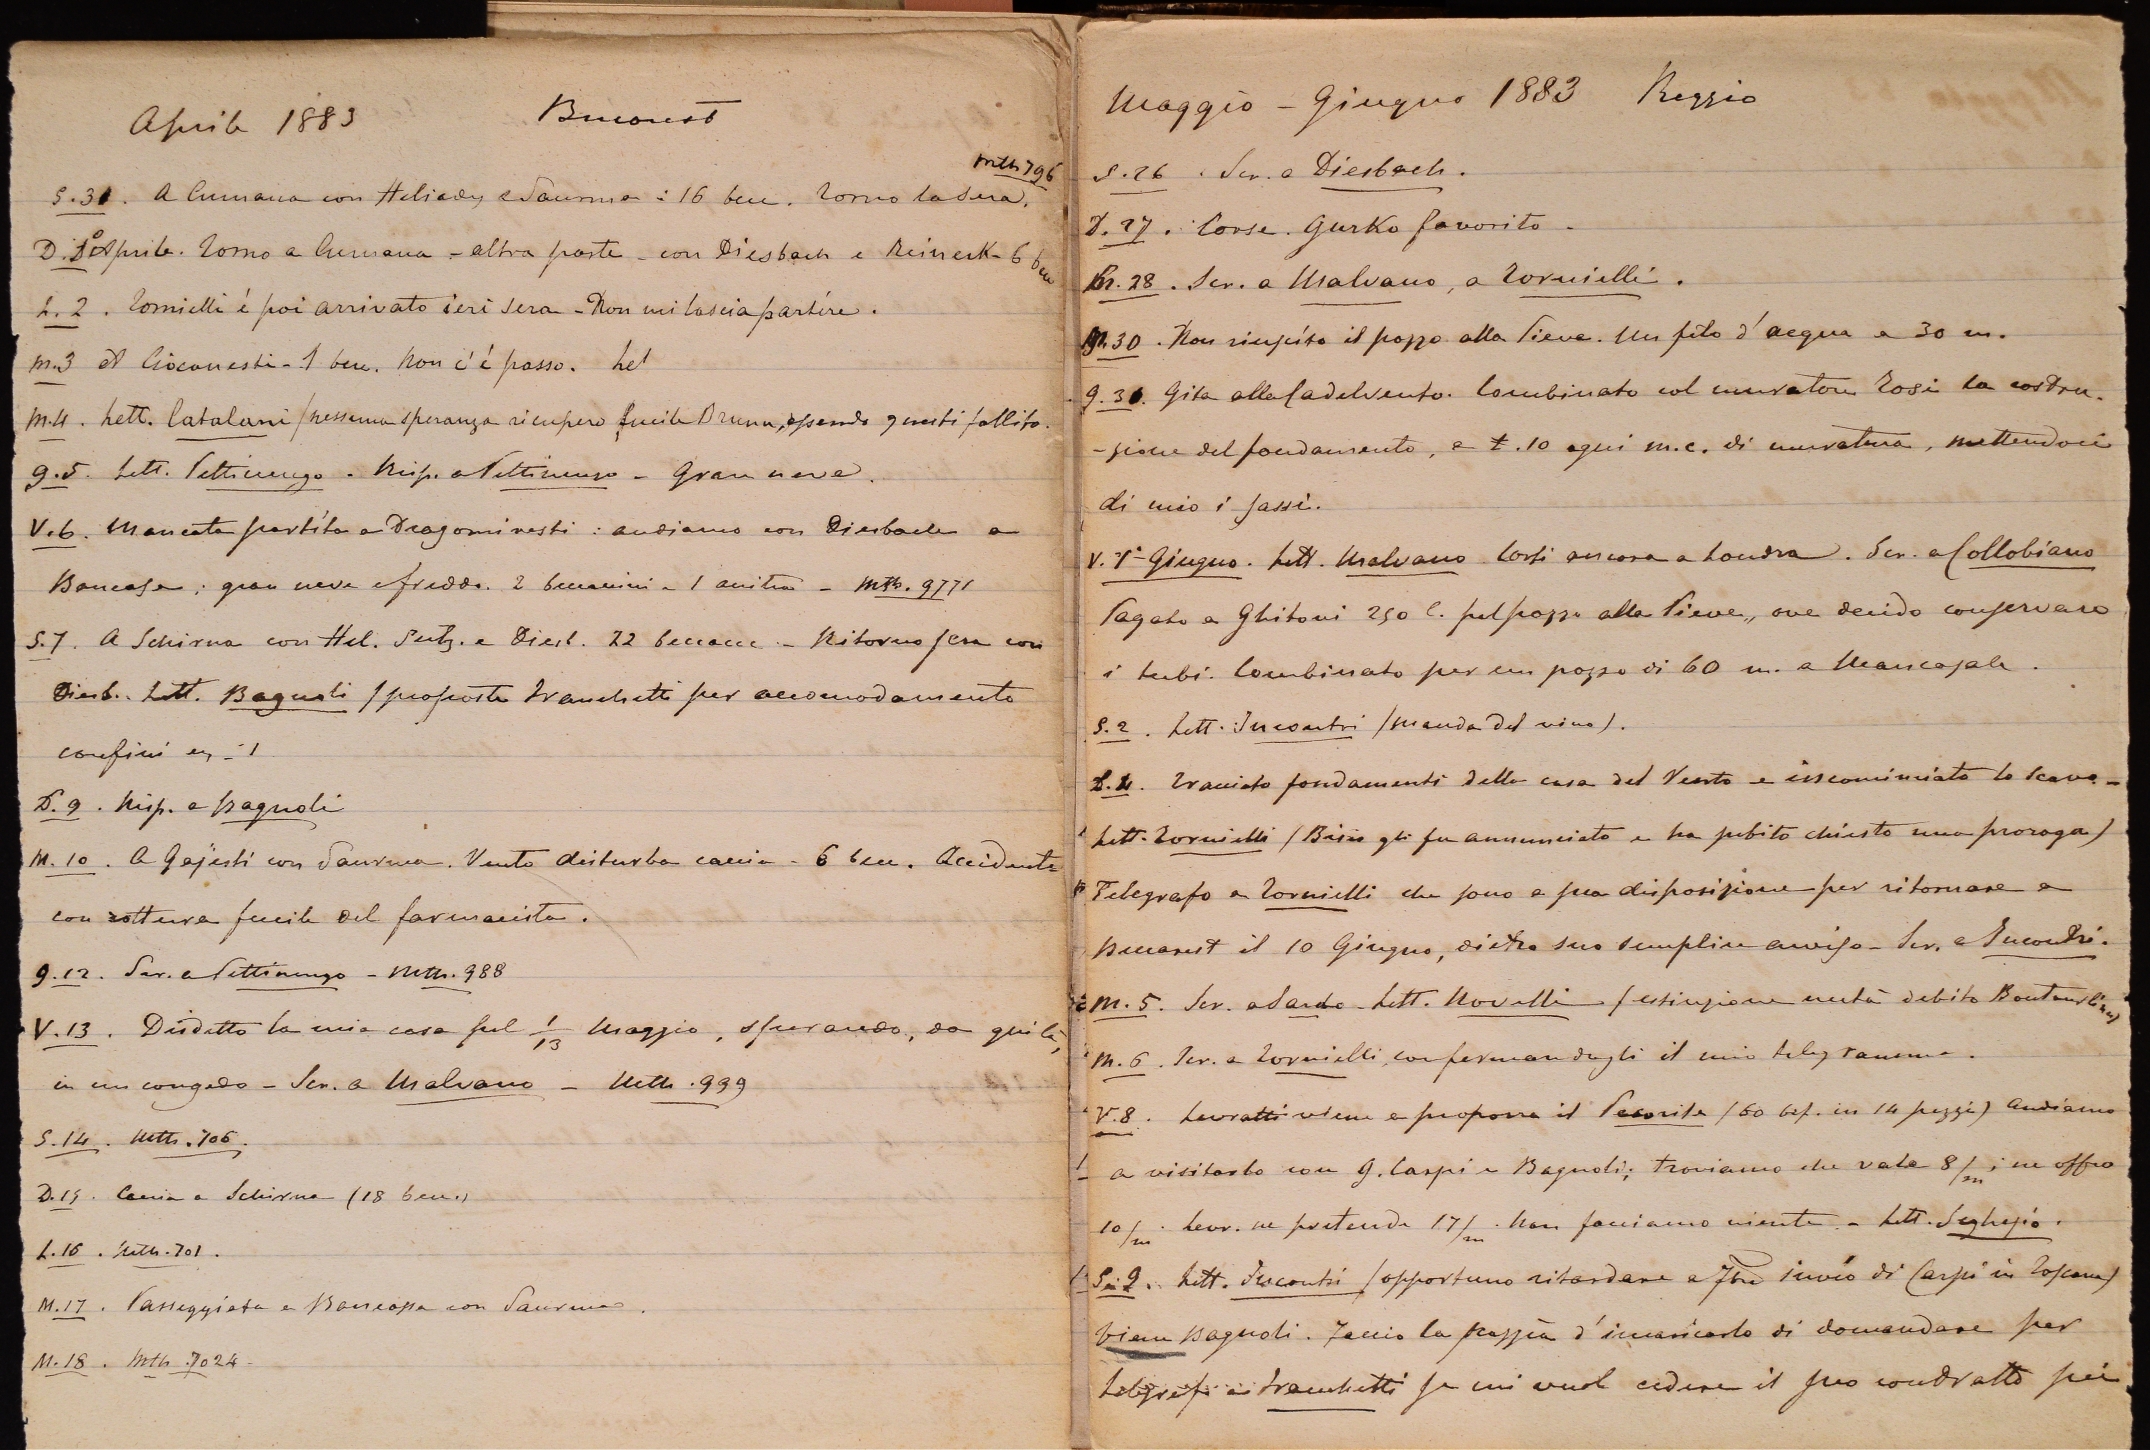 Aprile 1883 Bucarest
Mth 796
S. 31. A Cumana con Heliady e Saurma : 16 becc. Torno la sera.
D. 1° Aprile. Torno a Cumana - altra parte - con Diesbach e Reineck - 6 becc
L. 2. Tornielli è poi arrivato ieri sera - Non mi lascia partire.
M. 3 A Ciocanesti - 1 becc. Non c'è passo.
M. 4. Lett. Catalani (nessuna speranza ricupero fucile Drunn, essendo questi fallito.
G. 5. Lett. Pettinengo - Risp. a Pettinengo - Gran neve.
V. 6. Mancata partita a Dragomiresti : andiamo con Diesbach a
Baneasa : gran neve e freddo. 2 beccacini e 1 anitra - Mth. 9771
S. 7. A Schirna con Hel. Sutz. e Diesb. 22 beccacce - Ritorno sera con
Diesb. Lett. Bagnoli (proposta Franchetti per accomodamento
confini
D. 9. Risp. a Bagnoli
M. 10. A Gajesti con Saurma. Vento disturba caccia - 6 becc. Accidente
con rottura fucile del farmacista.
G. 12. Scr. a Pettinengo - Mth. 988
V. 13. Disdetto la mia casa pel 1/13 Maggio, sperando, da qui là,
in un congedo - Scr. a Malvano - Mth. 999
S. 14. Mth. 706.
D. 15. Caccia a Schirna (18 becc.)
L. 16. Mth. 701.
M. 17. Passeggiata a Baneassa con Saurma.
M. 18. Mth. 7024
Maggio - Giugno 1883 Reggio
S. 26. Scr. a Diesbach.
D. 27. Corse. Gurko favorito.
28. Scr. a Malvano, a Tornielli.
M. 30. Non riuscito il pozzo alla Pieve. Un filo d'acqua a 30 m.
G. 31. Gita alla Cadelvento. Combinato col muratore Rosi la costru-
-zione del fondamento, a £. 10 ogni m.c. di muratura, mettendoci
di mio i sassi.
V. 1° Giugno. Lett. Malvano Corti ancora a Londra. Scr. a Collobiano
Pagato a Ghitoni 250 l. pel pozzo alla Pieve, ove decido conservare
i tubi. Combinato per un pozzo di 60 m. a Mancasale.
S. 2. Lett. Incontri (manda del vino).
L. 4. Tracciato fondamenti della casa del Vento e incominciato lo scavo -
Lett. Tornielli (gli fu annunciato e ha subito chiesto una proroga)
Telegrafo a Tornielli che sono a sua disposizione per ritornare a
Bucarest il 10 Giugno, dietro suo semplice avviso - Scr. a Incontri.
M. 5. Scr. a Sardo - Lett. Novelli (estinzione metà debito Boutourlin)
M. 6. Scr. a Tornielli, confermandogli il mio telegramma.
V. 8. Levratti viene a proporre il Pecorile (60 bif. in 14 pezzi) Andiamo
a visitarlo con G. Carpi e Bagnoli; troviamo che vale 8/m; ne offro
10/m. Levr. ne pretende 17/m. Non facciamo niente. - Lett. Seghesio.
S. 9. Lett. Incontri (opportuno ritardare a 7bre invio di Carpi in Toscana)
Viene Bagnoli. Faccio la pazzia d'incaricarlo di domandare per
telegrafo a Franchetti se mi vuol cedere il suo contratto pei